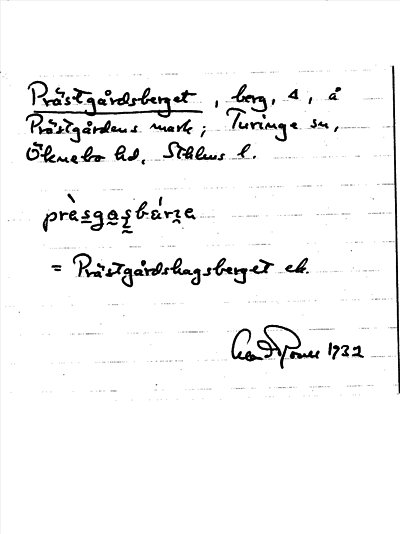 Prästgårdsberget, berg, Δ, å
Prästgårdens mark; Turinge sn,
Öknebo hd, Sthlms l.
= Prästgårdshagsberget ek.
1932